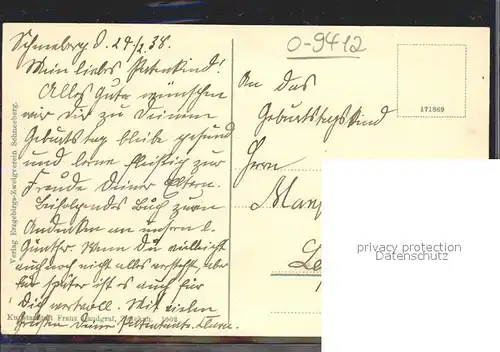 Schneeberg d. 24/2.38.
Mein liebes Patenkind!
Alles Gute wünschen
wir Dir zu Deinem
Geburtstag bleibe gesund
und lerne fleißig zur
Freude Deiner Eltern.
Beifolgendes Buch zum
Andenken an unsern l.
Günther. Wenn Du vielleicht
auch noch nicht alles verstehst, aber
für später ist es auch für
Dich wertvoll. Mit vielen
Grüßen Deine Patentante
0-9412
An das
Geburtstagskind
Herrn
171869
privacy protection
Datenschutz
Verlag Erzgebirgs-Zweigverein Schneeberg.
Kunstanstalt Franz Landgraf, Zwickau. 1602